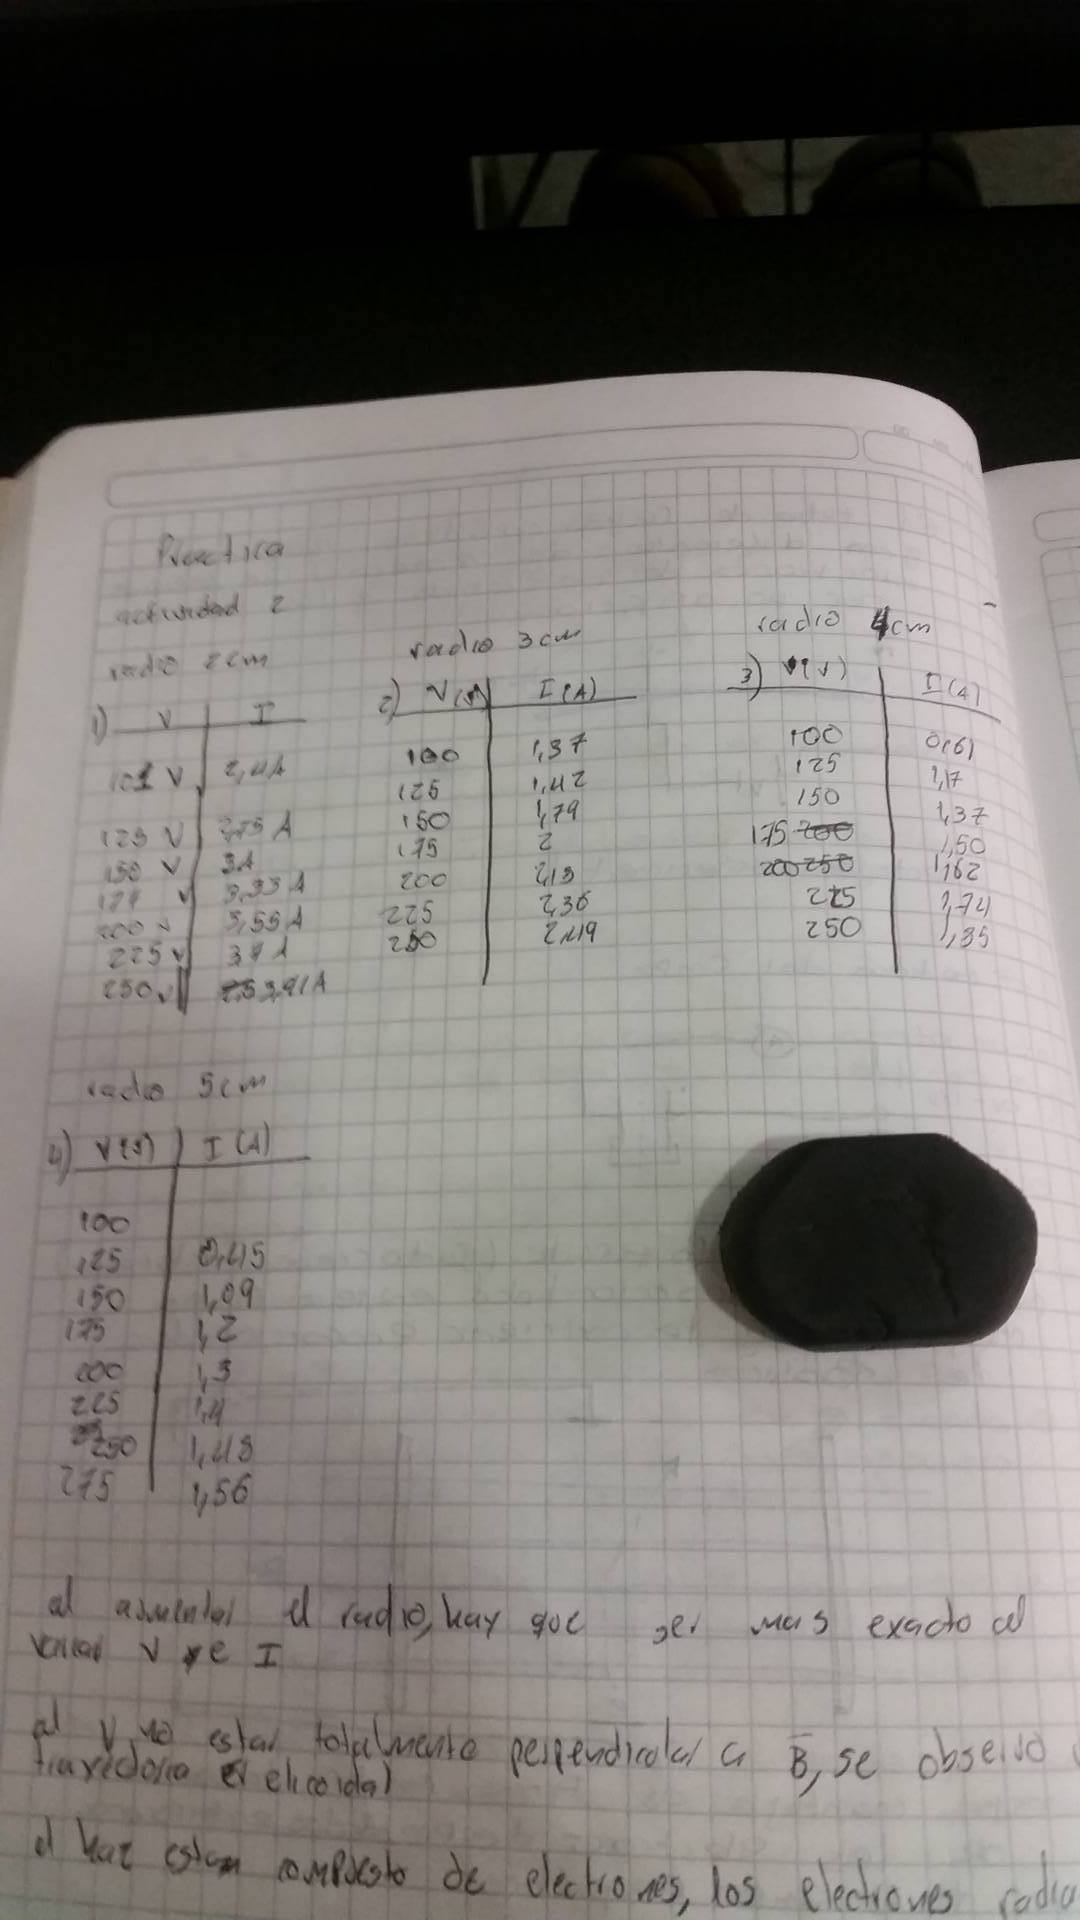 Practica
actividad 2
radio 2cm
1) V I
101 V 2,4A
125 V 2,75 A
150 V 3A
174 V 3,33 A
200 V 3,55 A
225 V 3,7 A
250 V 3,91A
radio 3cm
2) V(V) I(A)
100 1,37
125 1,42
150 1,79
175 2
200 2,13
225 2,36
250 2,49
radio 4cm
3) V(V) I(A)
100 0,61
125 1,17
150 1,37
175 200 1,50
200 250 1,62
225 1,74
250 1,85
radio 5cm
4) V(V) I(A)
100
125 0,45
150 1,09
175 1,2
200 1,3
225 1,4
250 1,48
275 1,56
al aumentar el radio, hay que ser mas exacto al
variar V e I
al V no estar totalmente perpendicular a B, se observo
trayectoria elicoidal
el haz compuesto de electrones, los electrones